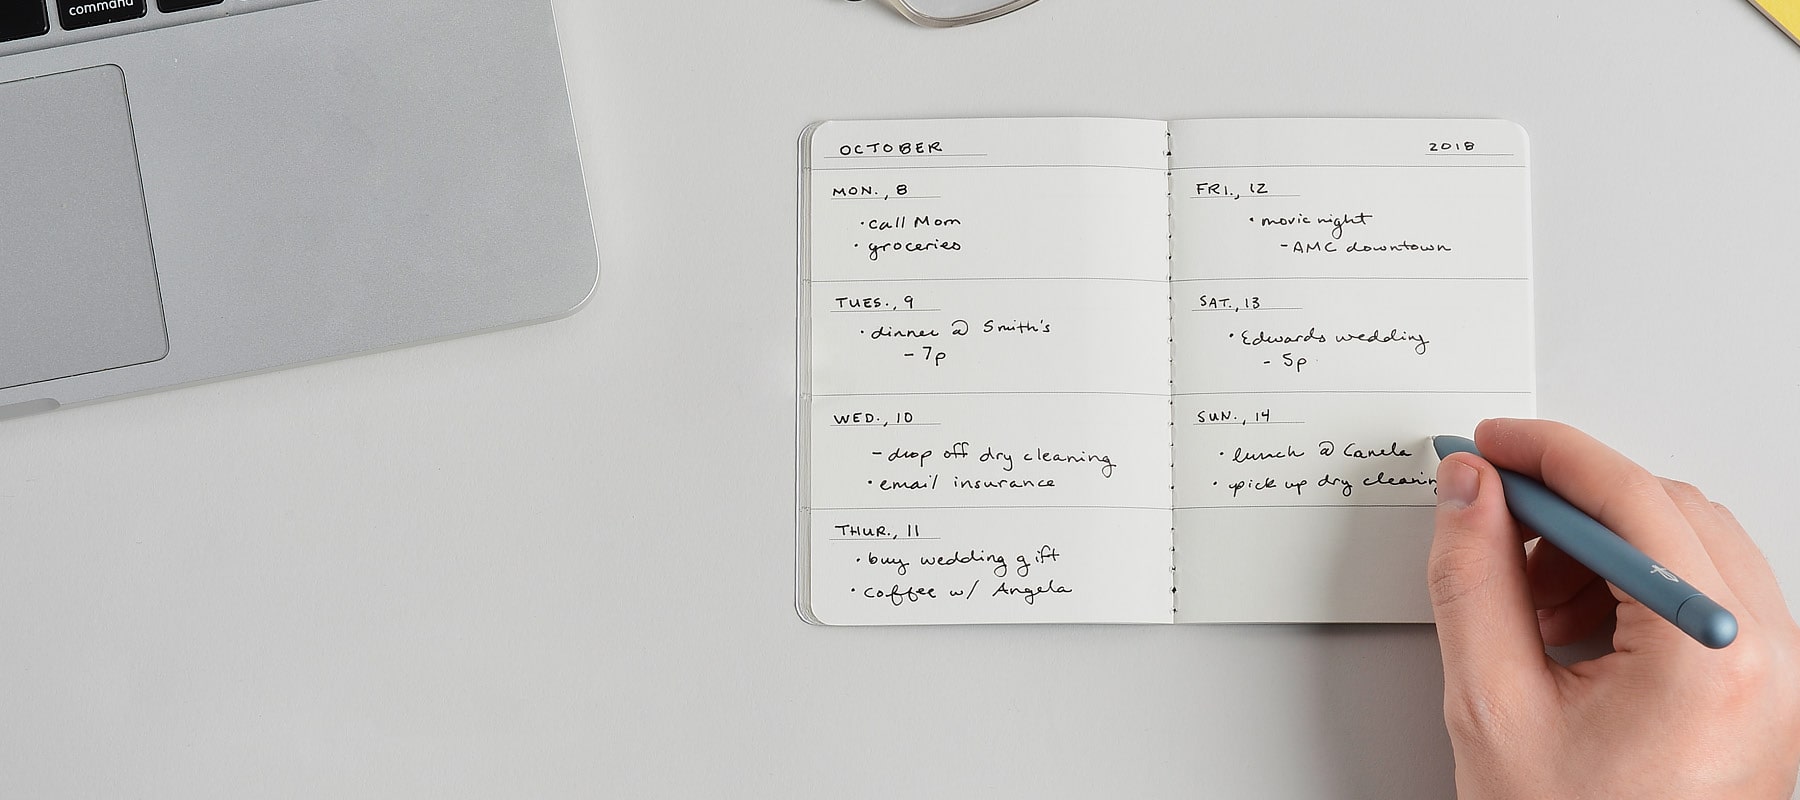 command
OCTOBER
MON., 8
• call Mom
• groceries
TUES., 9
• dinner @ Smith's
- 7p
WED., 10
- drop off dry cleaning
• email insurance
THUR., 11
• buy wedding gift
• coffee w/ Angela
2018
FRI., 12
• movie night
- AMC downtown
SAT., 13
• Edwards wedding
- 5p
SUN., 14
• lunch @ Canela
• pick up dry cleaning